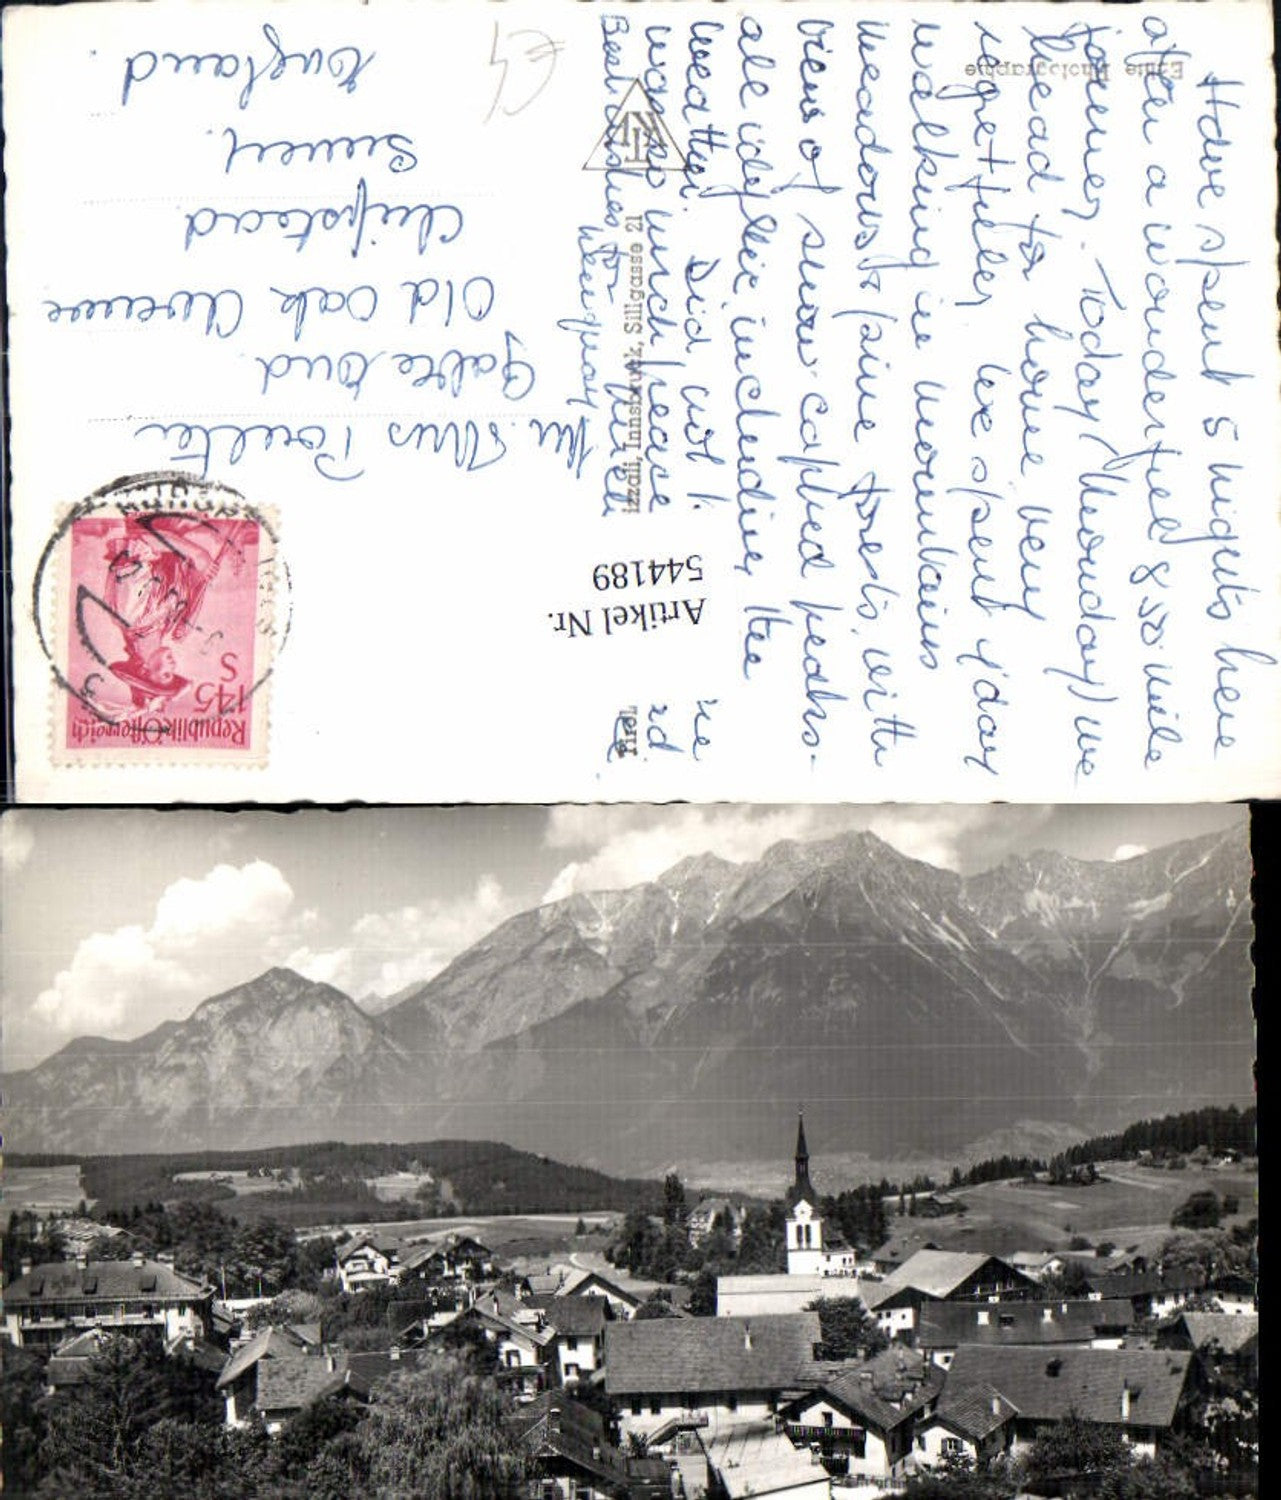 Have spent 5 nights here
after a wonderful 850 mile
journey. Today (Monday) we
head for home very
regretfully. We spent 1 day
walking in mountains
meadows & pine forests, with
views of snow-capped peaks.
all idyllic including the
weather. Did not
want so much peace
Best wishes for
Echte Photographie
Innsbruck, Sillgasse 21
Tirol
Artikel Nr.
544189
Republik Österreich
1.45
S
Old Oak Avenue
Chipstead
Surrey
England.
€4